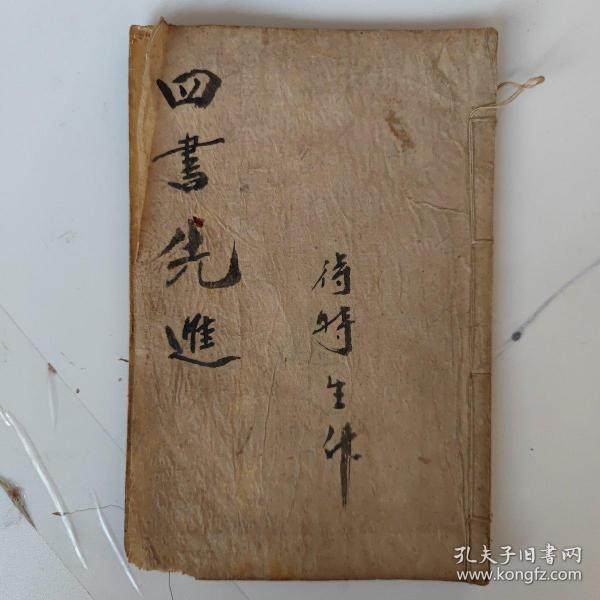 四書先進
待時生
孔夫子旧書网
www.kongfz.com